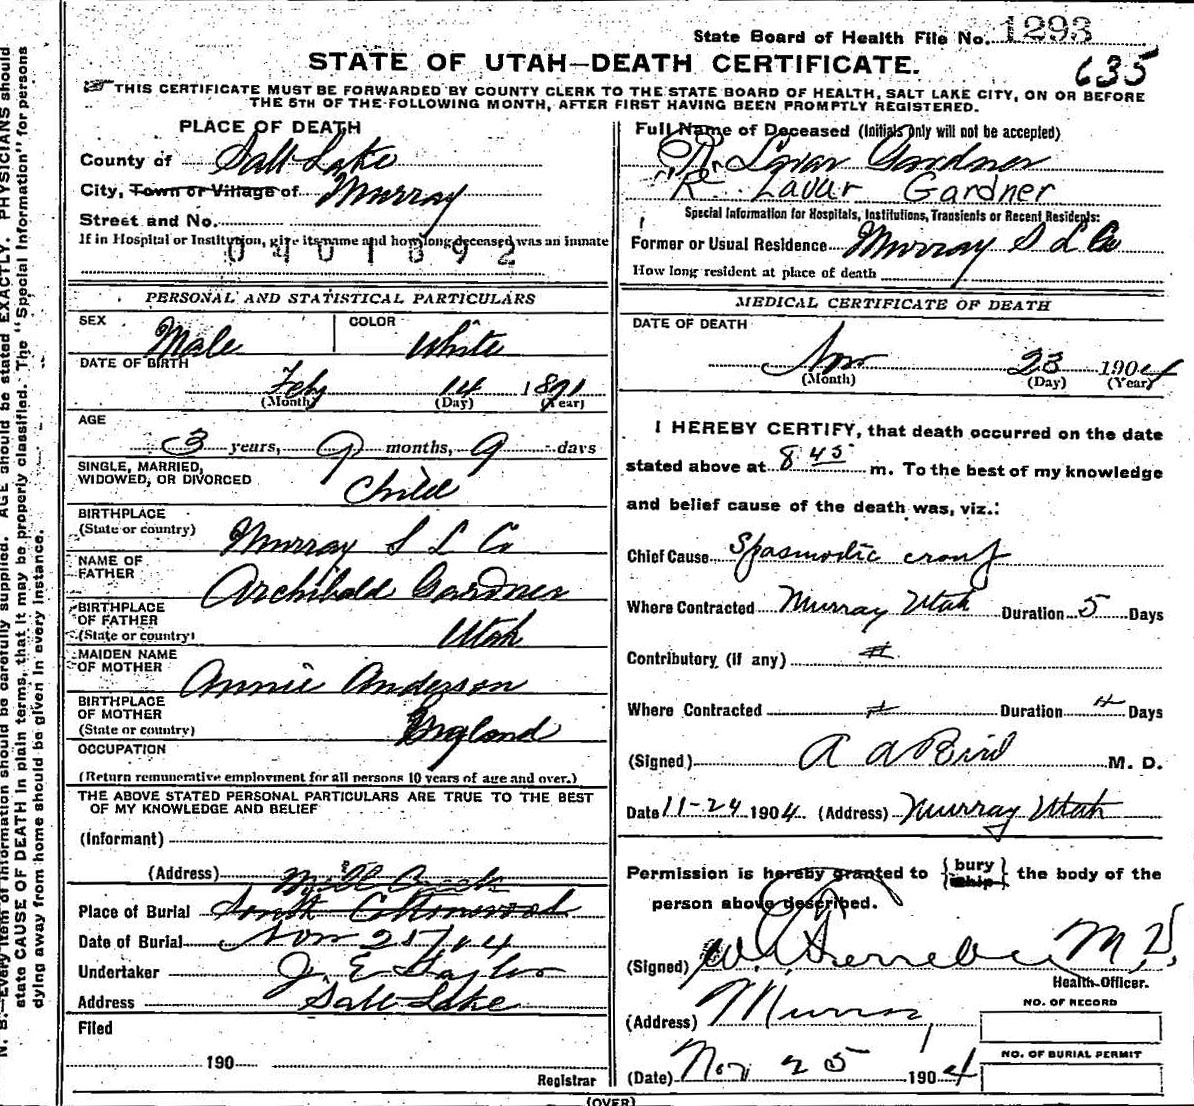 State Board of Health File No. 1293
635
STATE OF UTAH—DEATH CERTIFICATE.
THIS CERTIFICATE MUST BE FORWARDED BY COUNTY CLERK TO THE STATE BOARD OF HEALTH, SALT LAKE CITY, ON OR BEFORE
THE 5TH OF THE FOLLOWING MONTH, AFTER FIRST HAVING BEEN PROMPTLY REGISTERED.
PLACE OF DEATH
County of Salt Lake
City, Town or Village of Murray
Street and No.
If in Hospital or Institution, give its name and how long deceased was an inmate
0401892
PERSONAL AND STATISTICAL PARTICULARS
SEX Male COLOR White
DATE OF BIRTH
Feby 14 1891
(Month) (Day) (Year)
AGE
3 years, 9 months, 9 days
SINGLE, MARRIED,
WIDOWED, OR DIVORCED Child
BIRTHPLACE
(State or country) Murray S L Co
NAME OF
FATHER Archibald Gardner
BIRTHPLACE
OF FATHER
(State or country) Utah
MAIDEN NAME
OF MOTHER Annie Anderson
BIRTHPLACE
OF MOTHER
(State or country) England
OCCUPATION
(Return remunerative employment for all persons 10 years of age and over.)
THE ABOVE STATED PERSONAL PARTICULARS ARE TRUE TO THE BEST
OF MY KNOWLEDGE AND BELIEF
(Informant)
(Address) Mill Creek
Place of Burial South Cottonwood
Date of Burial Nov 25/04
Undertaker J. E Taylor
Address Salt Lake
Filed
190
Registrar
Full Name of Deceased (Initials only will not be accepted)
R. Lavar Gardner
"Re" Lavar Gardner
Special Information for Hospitals, Institutions, Transients or Recent Residents:
Former or Usual Residence Murray S L Co
How long resident at place of death
MEDICAL CERTIFICATE OF DEATH
DATE OF DEATH
Nov 23 1904
(Month) (Day) (Year)
I HEREBY CERTIFY, that death occurred on the date
stated above at 8 45 m. To the best of my knowledge
and belief cause of the death was, viz.:
Chief Cause Spasmodic croup
Where Contracted Murray Utah Duration 5 Days
Contributory (if any)
Where Contracted Duration Days
(Signed) A A Bird M. D.
Date 11-24 1904 (Address) Murray Utah
Permission is hereby granted to {bury ship} the body of the
person above described.
(Signed) M.D.
Health Officer.
(Address) Murray
(Date) Nov 25 1904
NO. OF RECORD
NO. OF BURIAL PERMIT
(OVER)
N. B.—Every item of information should be carefully supplied. AGE should be stated EXACTLY. PHYSICIANS should
state CAUSE OF DEATH in plain terms, that it may be properly classified. The "Special Information" for persons
dying away from home should be given in every instance.